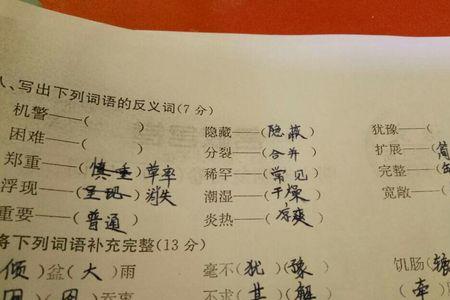 、写出下列词语的反义词(7 分)
机警——( )
困难——( ) 隐藏——(隐蔽) 犹豫——(
郑重——(慎重)草率 分裂——(合并) 扩展——(
浮现——(呈现)消失 稀罕——(常见) 完整——(
重要——(普通) 潮湿——(干燥) 宽敞——(
炎热——(凉爽)
将下列词语补充完整(13 分)
倾)盆(大)雨 毫不(犹)(豫) 饥肠(辘
吞枣 不求(其)( (牵